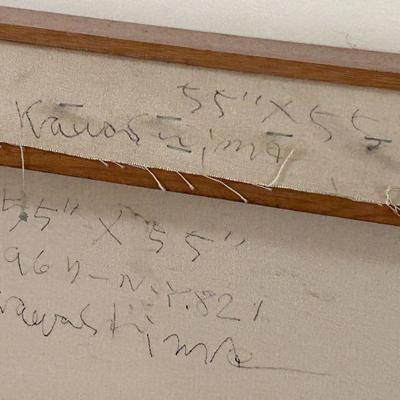 55" X 55
Kawashima
55" X 55"
964-N.Y.821
Kawashima